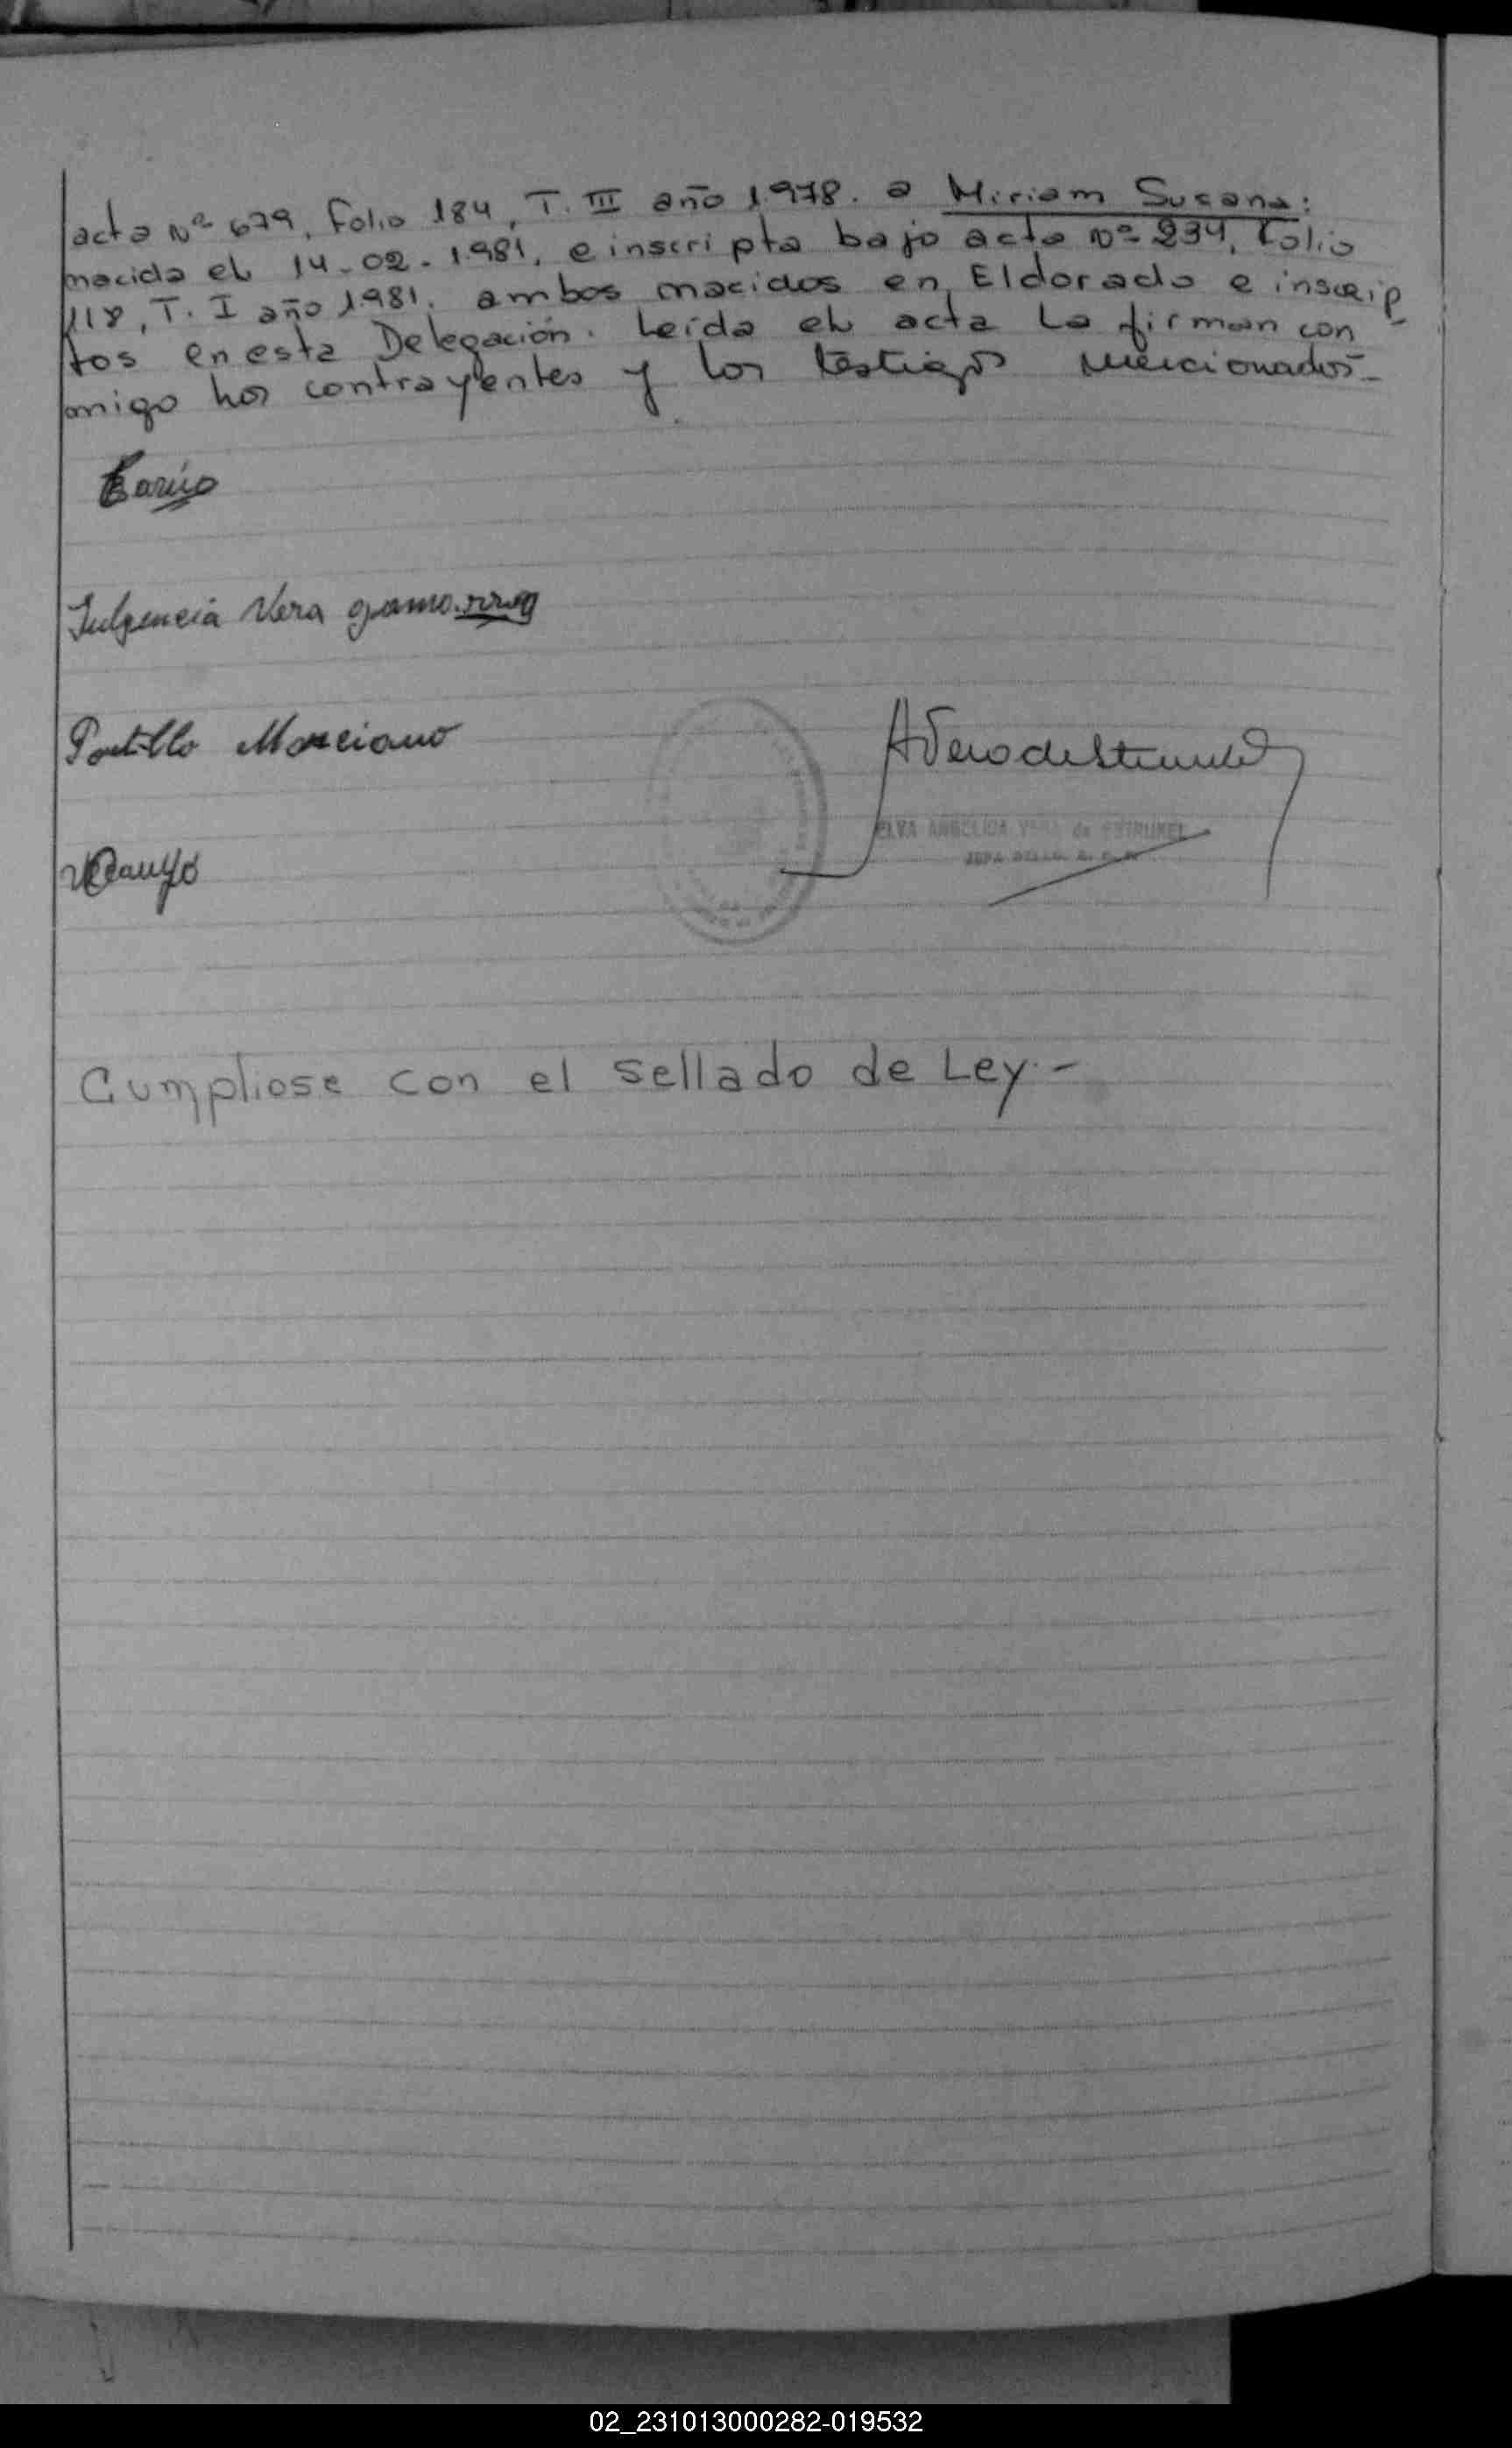 acta Nº 679, Folio 184, T. III año 1.978. a Miriam Susana:
nacida el 14-02-1.981, e inscripta bajo acta Nº 234, Folio
118, T. I año 1.981. ambos nacidos en Eldorado e inscrip-
tos en esta Delegación. Leída el acta la firman con
migo los contrayentes y los testigos mencionados-
Fulgencia Vera gamarra
Portillo Marciano
AVeradeStrumkel
ELVA ANGELICA VERA de STRUMKEL
Cumpliose con el sellado de Ley.-
02_231013000282-019532